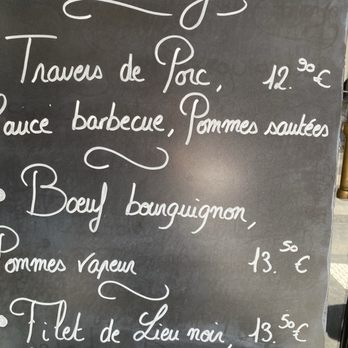 Travers de Porc, 12.90€
Sauce barbecue, Pommes sautées
• Bœuf bourguignon,
Pommes vapeur 13.50€
• Filet de Lieu noir, 13.50€